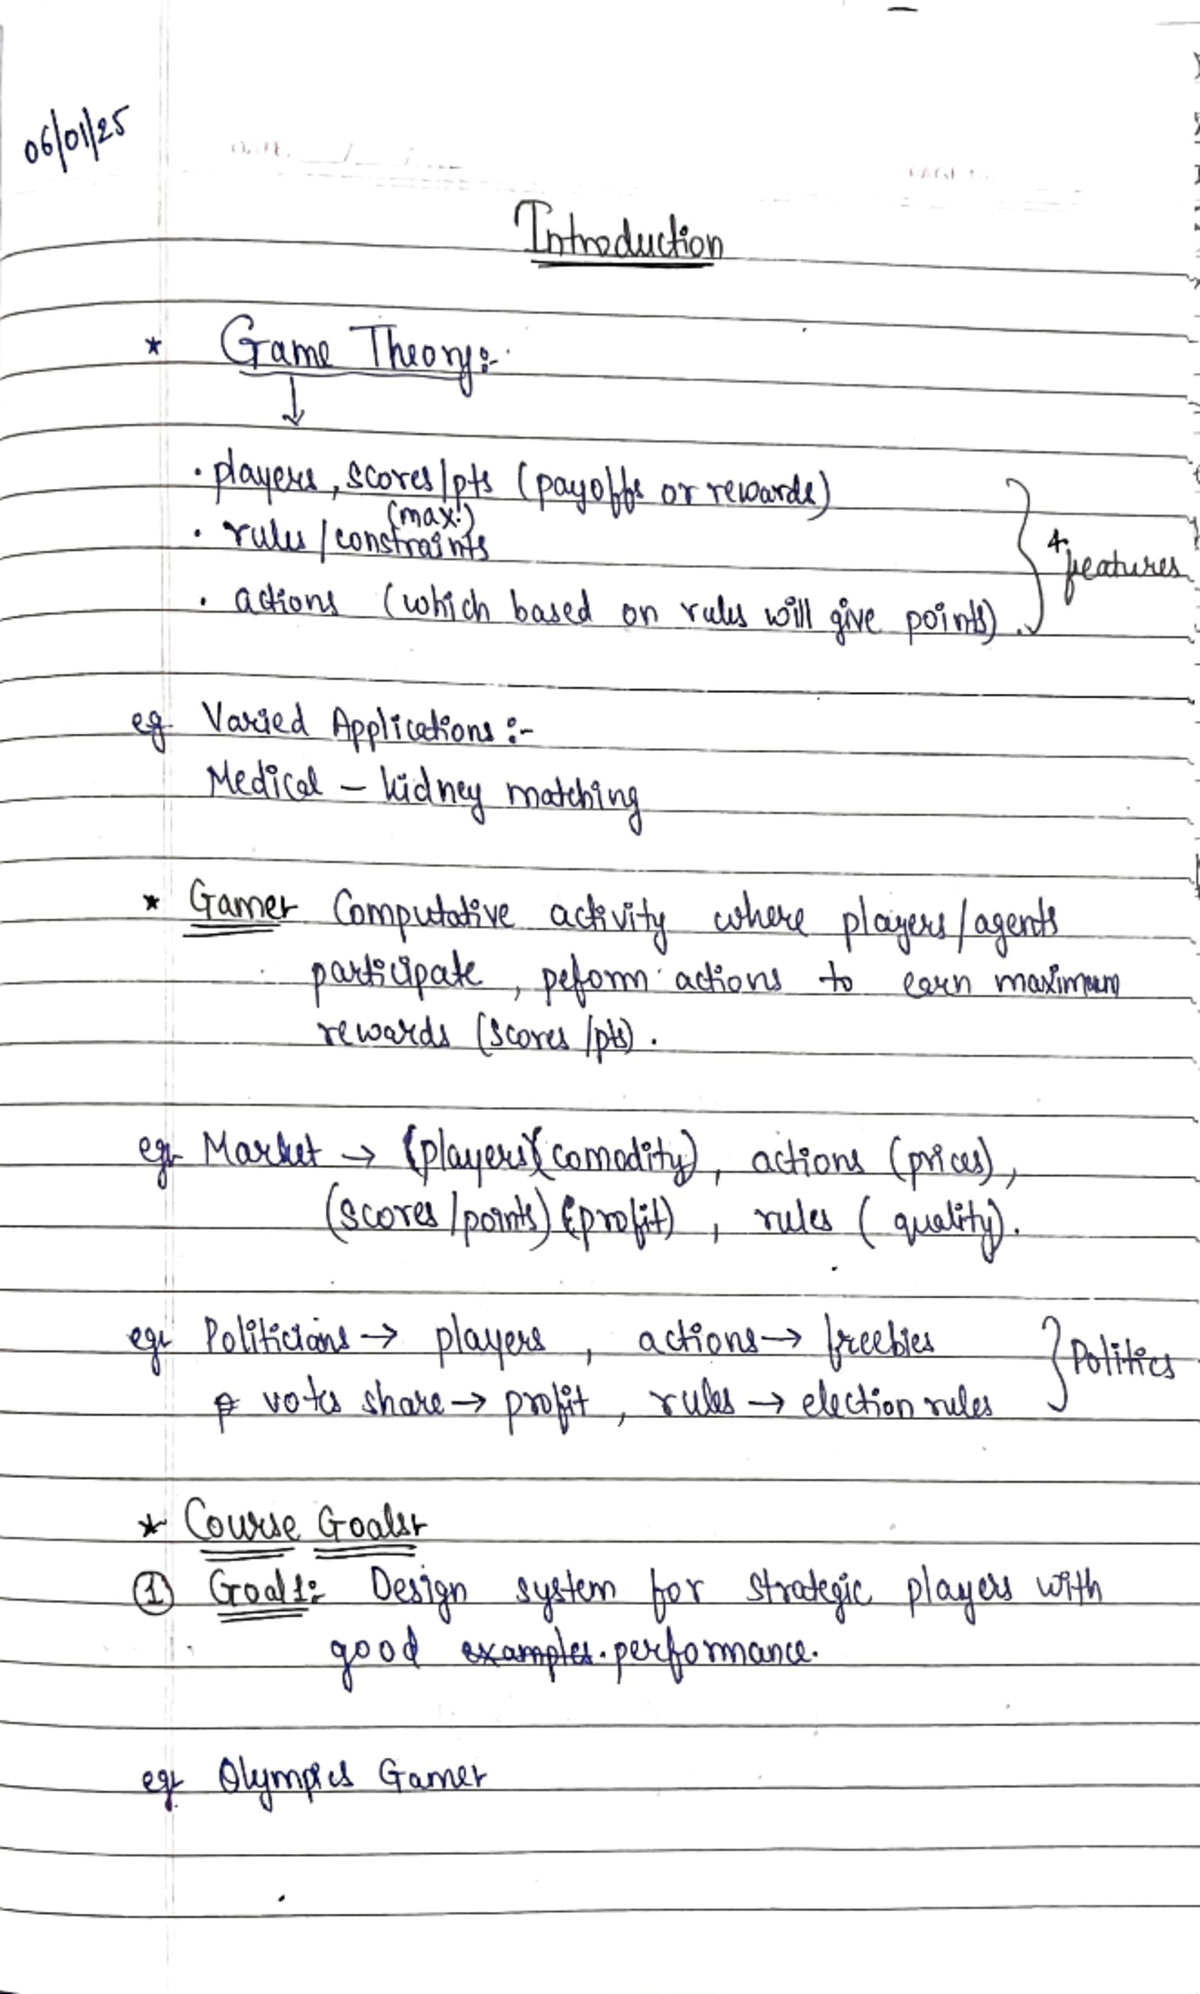 06/01/25
DATE: / /
PAGE
Introduction
* Game Theory:-
↓
· players, scores/pts (payoffs or rewards)
(max.)
· rules/constraints
4 features
· actions (which based on rules will give points).
eg Varied Applications:-
Medical - kidney matching
* Game:- Computative activity where players/agents
participate, peform actions to earn maximum
rewards (scores/pts).
eg:- Market → (players)(comodity), actions (prices),
(scores/points) (profit), rules (quality).
eg:- Politicians → players, actions → freebies
votes share → profit, rules → election rules
} Politics
* Course Goals:-
① Goal 1:- Design system for strategic players with
good examples. performance.
eg:- Olympics Game:-